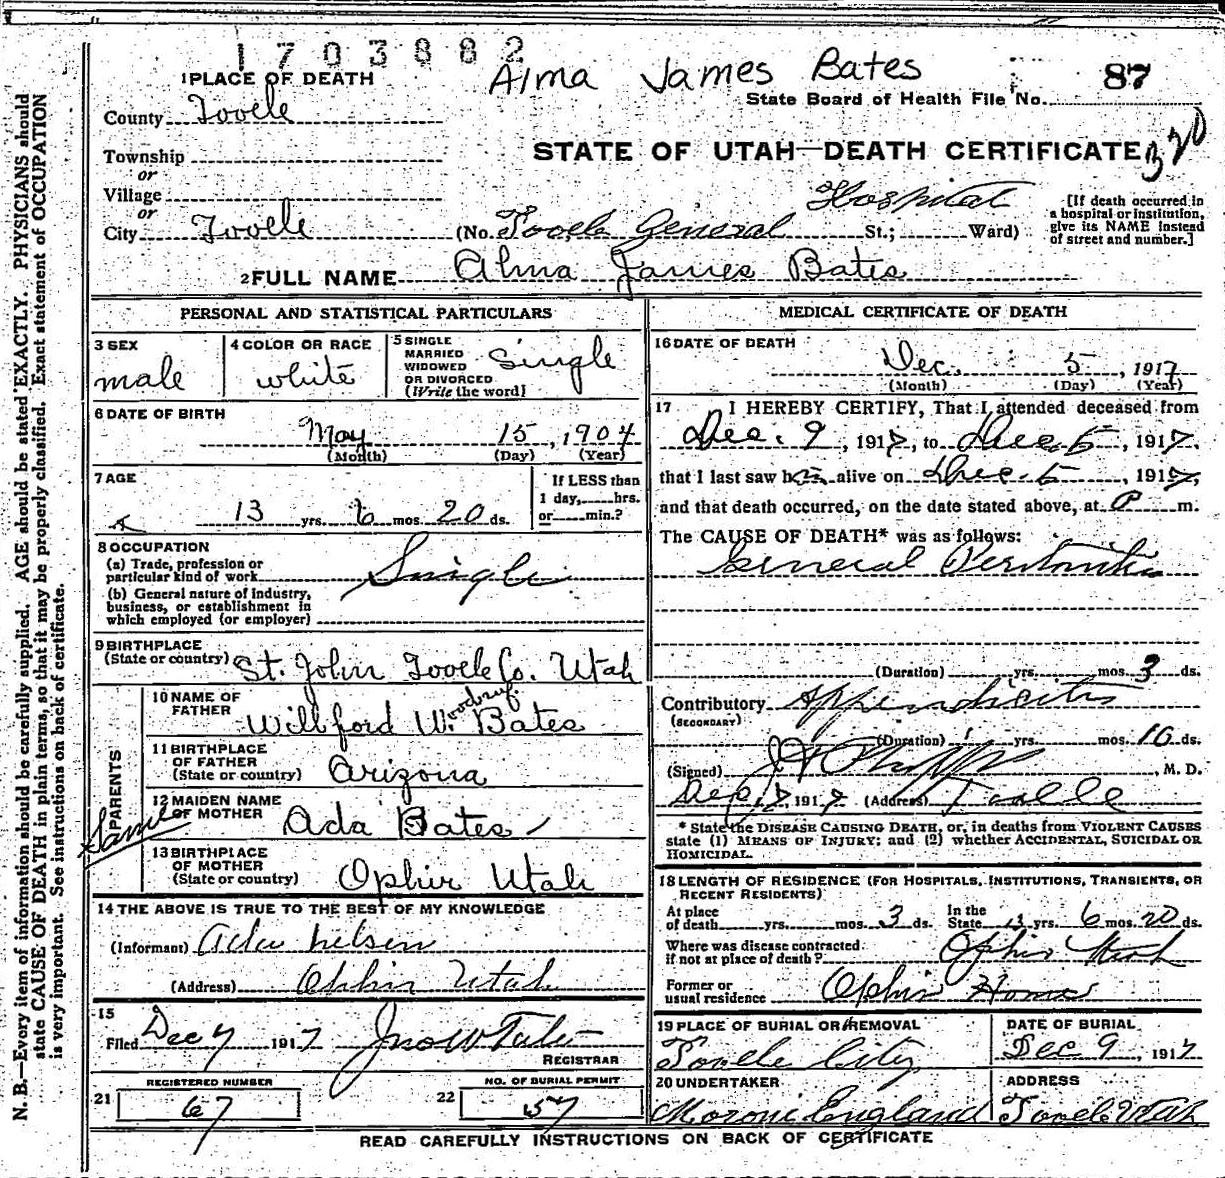 1703882
Alma James Bates
87
State Board of Health File No.
320
STATE OF UTAH—DEATH CERTIFICATE
1 PLACE OF DEATH
County Tooele
Township
or
Village
or
City Tooele
(No. Tooele General Hospital St.; Ward)
[If death occurred in
a hospital or institution,
give its NAME instead
of street and number.]
2 FULL NAME Alma James Bates
PERSONAL AND STATISTICAL PARTICULARS
3 SEX
male
4 COLOR OR RACE
white
5 SINGLE
MARRIED
WIDOWED
OR DIVORCED
(Write the word)
Single
6 DATE OF BIRTH
May 15, 1904
(Month) (Day) (Year)
7 AGE
13 yrs. 6 mos. 20 ds.
If LESS than
1 day, hrs.
or min.?
8 OCCUPATION
(a) Trade, profession or
particular kind of work
Single
(b) General nature of industry,
business, or establishment in
which employed (or employer)
9 BIRTHPLACE
(State or country) St. John Tooele Co. Utah
PARENTS
10 NAME OF
FATHER
Willford Woodruf. Bates
11 BIRTHPLACE
OF FATHER
(State or country) Arizona
12 MAIDEN NAME
OF MOTHER
Ada Bates
Same
13 BIRTHPLACE
OF MOTHER
(State or country) Ophir Utah
14 THE ABOVE IS TRUE TO THE BEST OF MY KNOWLEDGE
(Informant) Ada Nelson
(Address) Ophir Utah
15
Filed Dec 7 1917 Jno W Tate
REGISTRAR
21 REGISTERED NUMBER
67
22 NO. OF BURIAL PERMIT
57
MEDICAL CERTIFICATE OF DEATH
16 DATE OF DEATH
Dec. 5, 1917
(Month) (Day) (Year)
17 I HEREBY CERTIFY, That I attended deceased from
Dec. 2, 1917, to Dec 5, 1917.
that I last saw him alive on Dec. 5, 1917,
and that death occurred, on the date stated above, at P m.
The CAUSE OF DEATH* was as follows:
General Peritonitis
(Duration) yrs. mos. 3 ds.
Contributory Appendicitis
(SECONDARY)
(Duration) yrs. mos. 10 ds.
(Signed) M. D.
Dec 7, 1917 (Address) Tooele
* State the DISEASE CAUSING DEATH, or, in deaths from VIOLENT CAUSES
state (1) MEANS OF INJURY; and (2) whether ACCIDENTAL, SUICIDAL OR
HOMICIDAL.
18 LENGTH OF RESIDENCE (FOR HOSPITALS, INSTITUTIONS, TRANSIENTS, OR
RECENT RESIDENTS)
At place
of death yrs. mos. 3 ds.
In the
State 13 yrs. 6 mos. 20 ds.
Where was disease contracted
if not at place of death? Ophir Utah
Former or
usual residence Ophir Home
19 PLACE OF BURIAL OR REMOVAL
Tooele City
DATE OF BURIAL
Dec 9, 1917
20 UNDERTAKER
Moroni England
ADDRESS
Tooele Utah
READ CAREFULLY INSTRUCTIONS ON BACK OF CERTIFICATE
N. B.—Every item of information should be carefully supplied. AGE should be stated EXACTLY. PHYSICIANS should
state CAUSE OF DEATH in plain terms, so that it may be properly classified. Exact statement of OCCUPATION
is very important. See instructions on back of certificate.